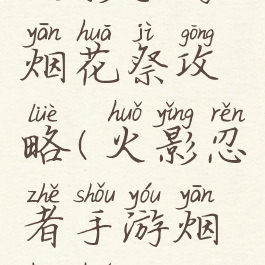 yān huā jì gōng
烟花祭攻
lüè huǒ yǐng rěn
略(火影忍
zhě shǒu yóu yān
者手游烟